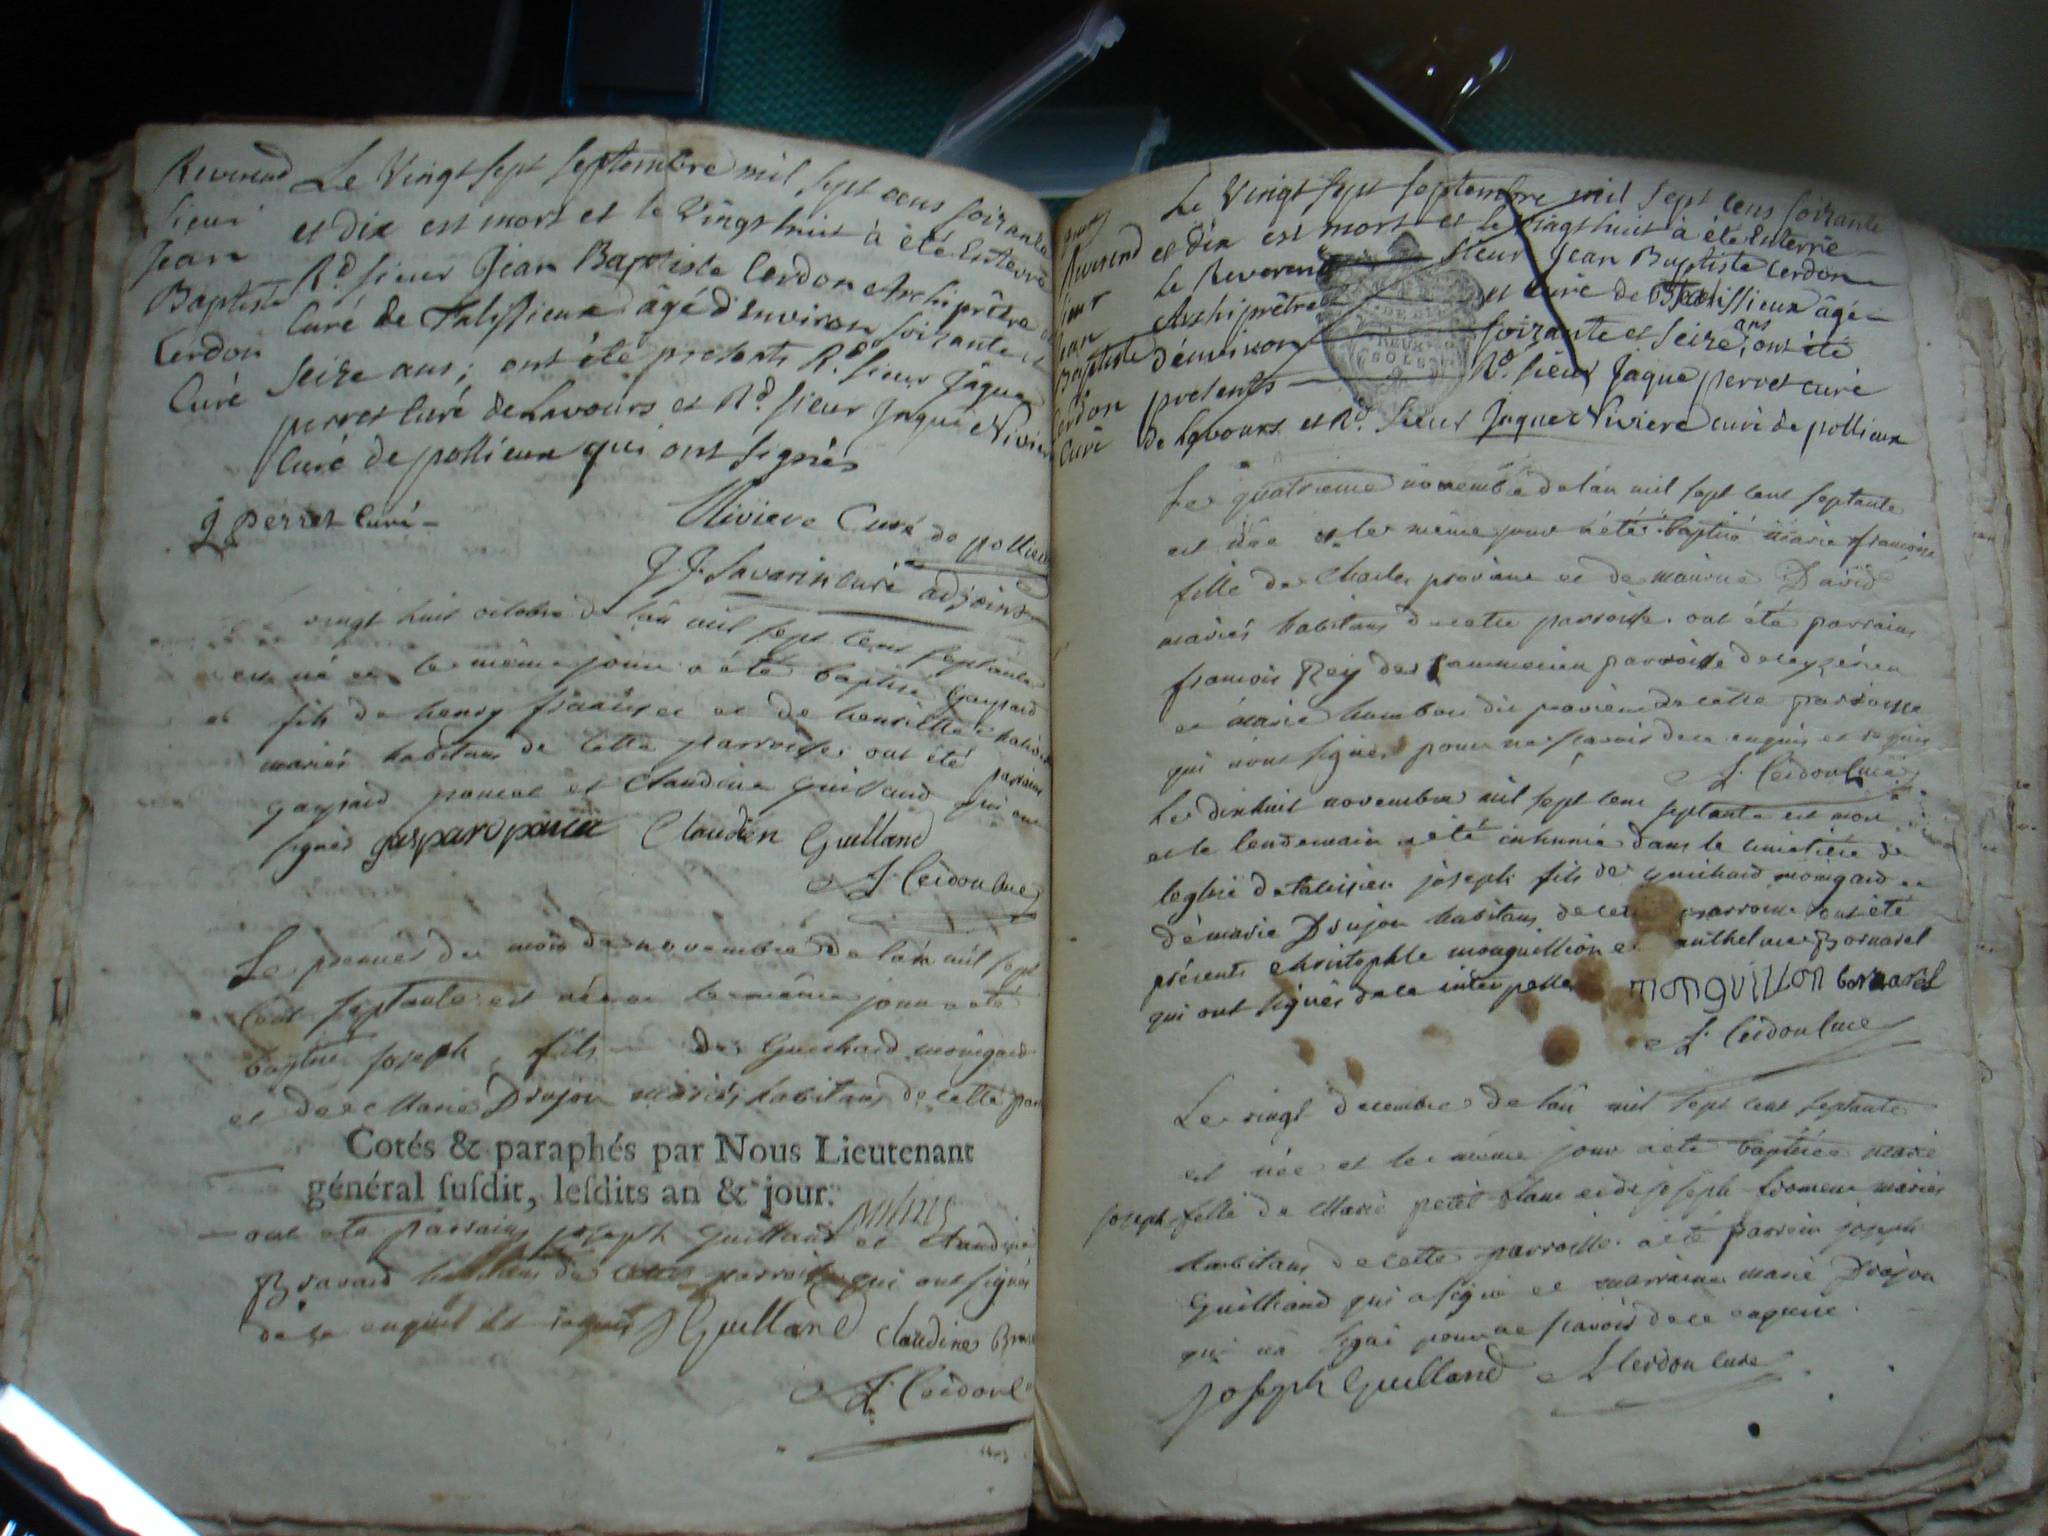 Reverend
sieur
Jean
Baptiste
Cerdon
Curé
Le Vingt sept septembre mil sept cens soixante
et dix est mort et le Vingt huit à été Enterré
Rd. sieur Jean Baptiste Cerdon Archiprêtre
Curé de Talissieux âgé d'Environ soixante et
seize ans; ont été presents Rd. sieur Jâque
perret Curé de Lavours et Rd. sieur Jaque Nivier
Curé de pollieux qui ont signés
J perret Curé
Niviere Curé de pollieu
J. J. Savarin curé adjoint
vingt huit octobre de lan mil sept cent septante
est né et le même jour a été baptisé Gaspard
fils de henry et de henriette
mariés habitans de cette parroisse ont été parrains
gaspard et Claudine Guilland qui ont
signés gaspard Claudin Guilland
Cerdon Curé
Le premier du mois de novembre de lan mil sept
cent septante est né et le même jour a été
baptisé joseph fils de Guichard mongard
et de Marie Drujon mariés habitans de cette par
Cotés & paraphés par Nous Lieutenant
général ſuſdit, leſdits an & jour.
ont été parrains joseph Guilland et Claudine
Bravard habitans de cette parroisse qui ont signés
de ce enquis et requis J Guilland Claudine Brava
Cerdon
Reverend
sieur
Jean
Baptiste
Cerdon
Curé
Le Vingt sept septembre mil sept cens soixante
et dix est mort et le vingt huit à été Enterré
le Reverend sieur Jean Baptiste Cerdon
Archiprêtre et curé de Talissieux âgé
d'environ soixante et seize ans, ont été
presents Rd. sieur Jaque perret curé
de Lavours et Rd. sieur Jaque Niviere curé de pollieux
Le quatrieme novembre de lan mil sept cent septante
est née et le même jour a été baptisé marie françoise
fille de Charle et de David
mariés habitans de cette parroisse ont été parrains
francois Rey de parroisse de
et marie dit de cette parroisse
qui n'ont signé pour ne scavoir de ce enquis et requis
Cerdon Curé
Le dixhuit novembre mil sept cent septante est mort
et le lendemain a été inhumé dans le cimetière de
leglise de talissieu joseph fils de Guichard mongard et
de marie Drujon habitans de cette parroisse ont été
présents christophle monguillion et anthelme Bornarel
qui ont signés de ce interpellés monguillon bornarel
Cerdon Curé
Le vingt decembre de lan mil sept cent septante
est née et le même jour a été baptisée marie
joseph fille de Marie petit et de joseph mariés
habitans de cette parroisse a été parrein joseph
Guilliand qui a signé et marraine marie Drujon
qui na signé pour ne scavoir de ce enquise.
Joseph Guilland Cerdon Curé